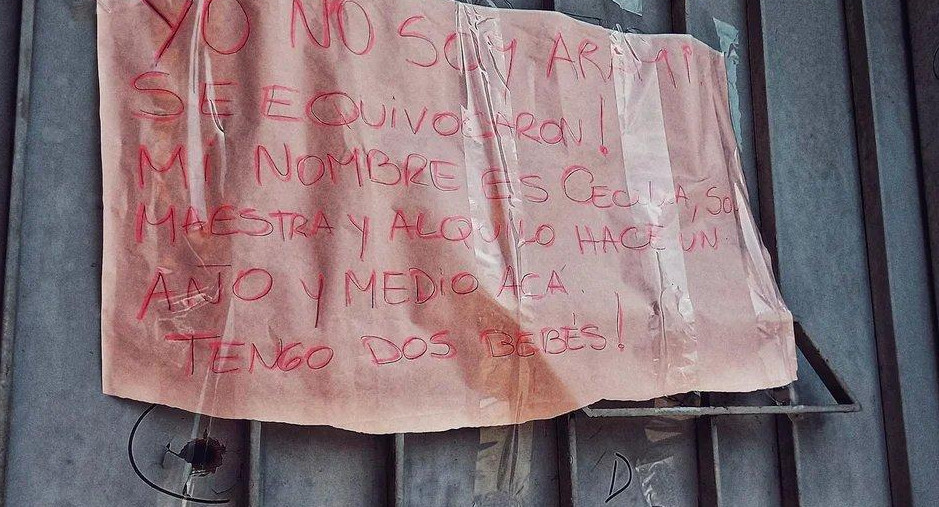 YO NO SOY ARAMI
SE EQUIVOCARON!
MI NOMBRE ES CECILIA, SOY
MAESTRA Y ALQUILO HACE UN
AÑO Y MEDIO ACÁ.
TENGO DOS BEBÉS!
D